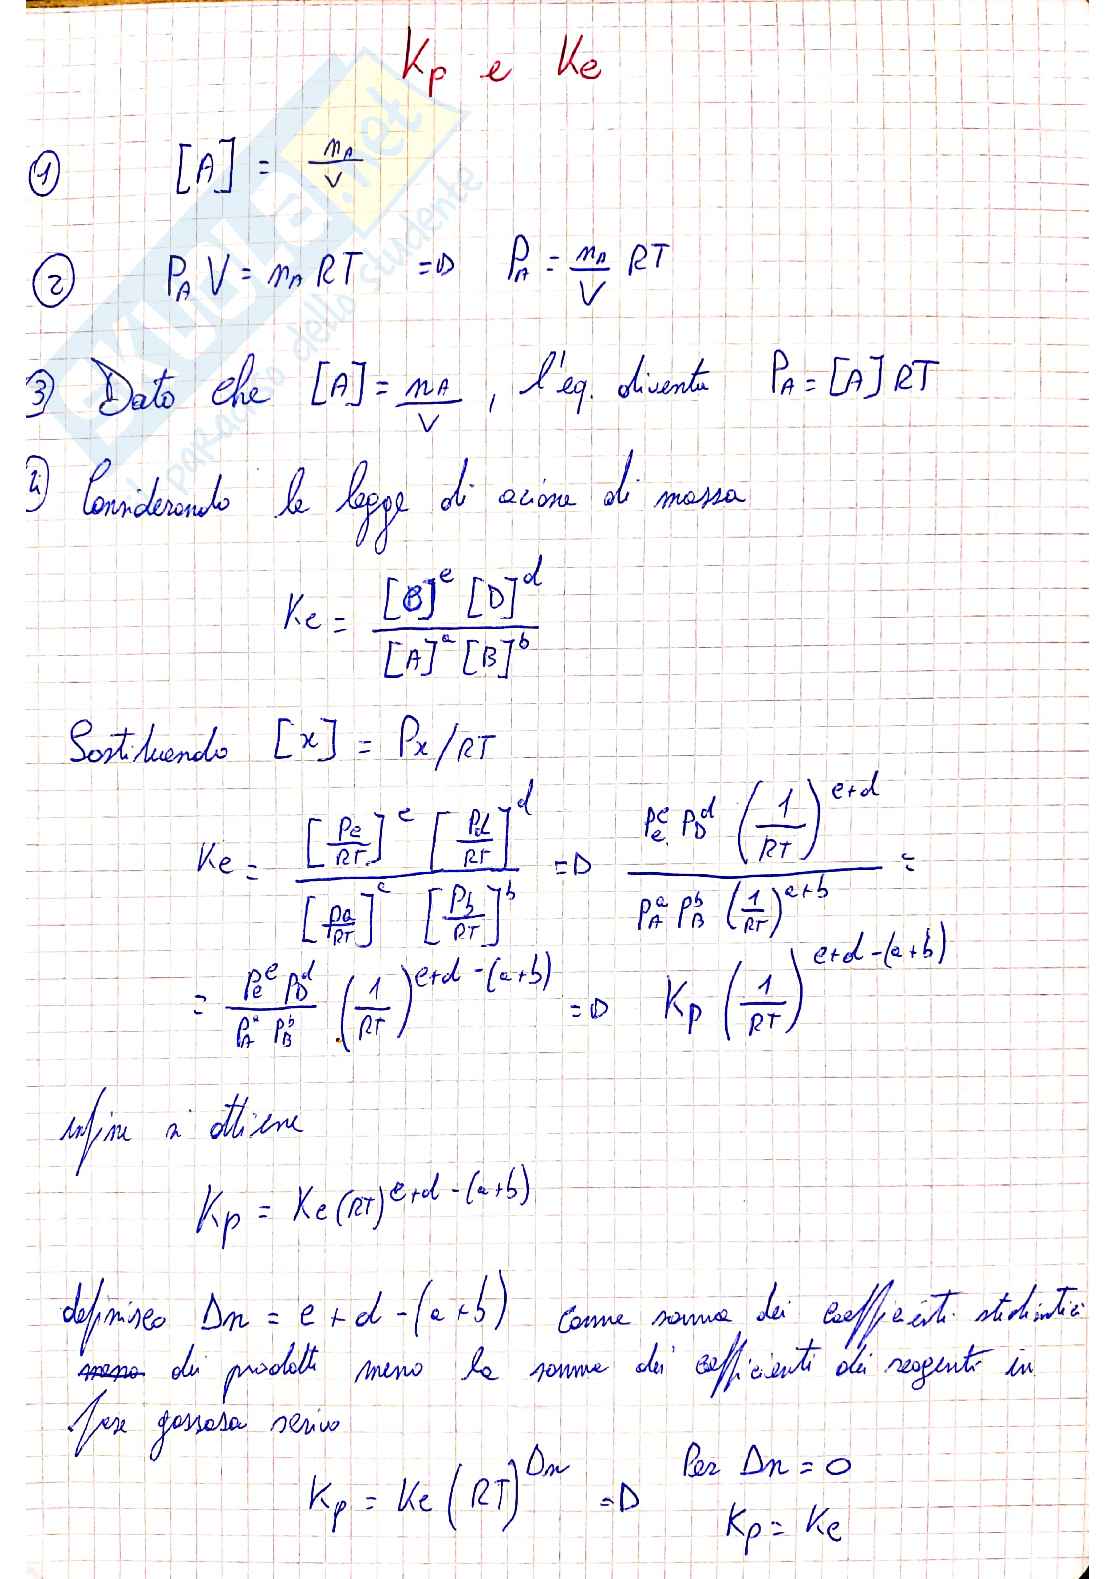 Kp e Kc
1 [A] = nA/V
2 PA V = nA RT => PA = nA/V RT
3) Dato che [A] = nA/V, l'eq. diventa PA = [A] RT
4) Considerando la legge di azione di massa
Kc = [C]^c [D]^d / [A]^a [B]^b
Sostituendo [x] = Px/RT
Kc = [Pc/RT]^c [Pd/RT]^d / [Pa/RT]^a [Pb/RT]^b => Pc^c PD^d (1/RT)^c+d / PA^a PB^b (1/RT)^a+b =
= Pc^c PD^d / PA^a PB^b · (1/RT)^c+d-(a+b) => Kp (1/RT)^c+d-(a+b)
infine si ottiene
Kp = Kc (RT)^c+d-(a+b)
definisco Δn = c+d-(a+b) come somma dei coefficienti stechiometrici
meno dei prodotti meno la somma dei coefficienti dei reagenti in
fase gassosa scrivo
Kp = Kc (RT)^Δn => Per Δn = 0
Kp = Kc
SKUOLA.net
il paradiso dello studente